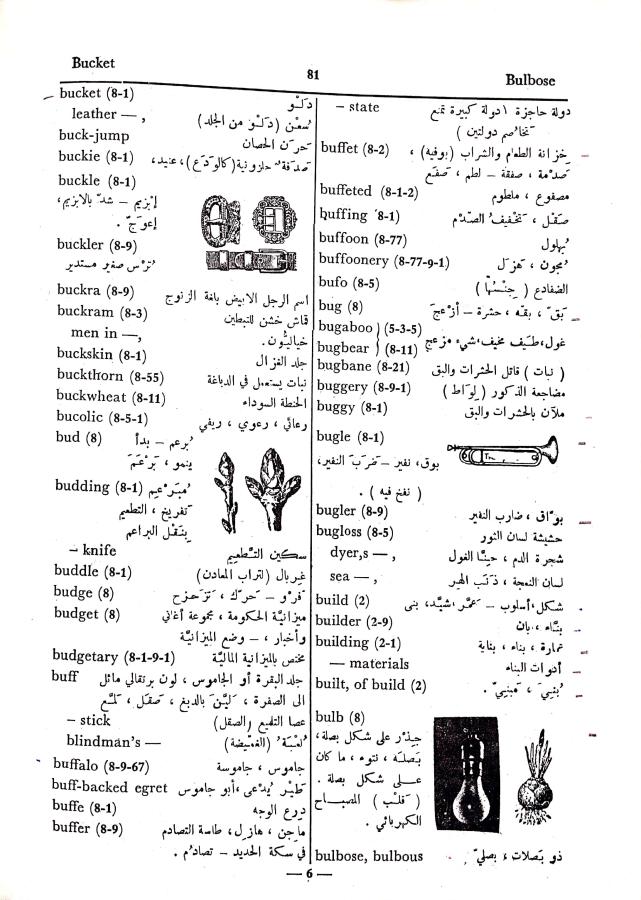 Bucket
81
Bulbose
bucket (8-1) دلو
leather —, سُعْن (دلو من الجلد)
buck-jump حرن الحصان
buckie (8-1) صدفة حلزونية (كالودع)، عنيد،
buckle (8-1)
إبزيم – شدّ بالابزيم،
إعوجّ .
buckler (8-9)
تُرْس صغير مستدير
buckra (8-9) اسم الرجل الابيض بلغة الزنوج
buckram (8-3) قماش خشن للتبطين
men in —, خياليّون.
buckskin (8-1) جلد الغزال
buckthorn (8-55) نبات يستعمل في الدباغة
buckwheat (8-11) الحنطة السوداء
bucolic (8-5-1) رعائي ، رعوي ، ريفي
bud (8) بُرعم – بدأ
ينمو ، بَرْعَمَ
budding (8-1) مُبَرْعِم
تفريخ ، التطعيم
بنقل البراعم
– knife سكين التطعيم
buddle (8-1) غربال (لتراب المعادن)
budge (8) فرو – حرك ، تزحزح
budget (8) ميزانية الحكومة ، مجموعة أغاني
وأخبار ، – وضع الميزانية
budgetary (8-1-9-1) مختص بالميزانية المالية
buff جلد البقرة أو الجاموس ، لون برتقالي مائل
الى الصفرة ، ليّن بالدبغ ، صقل ، لمّع
– stick عصا التلميع (الصقل)
blindman's — لُعْبَة (الغمّيضة)
buffalo (8-9-67) جاموس ، جاموسة
buff-backed egret طير يُدعى أبو جاموس
buffe (8-1) درع الوجه
buffer (8-9) ماجن ، هازل، طاسة التصادم
في سكة الحديد – تصادم .
– state دولة حاجزة (دولة كبيرة تمنع
تخاصم دولتين )
buffet (8-2) خزانة الطعام والشراب (بوفيه) ،
صدمة ، صفقة – لطم ، صفع
buffeted (8-1-2) مصفوع ، ملطوم
huffing (8-1) صقل ، تخفيف الصدم
buffoon (8-77) بهلول
buffoonery (8-77-9-1) مجون ، هزل
bufo (8-5) الضفادع ( جنسها )
bug (8) بقّ ، بقة ، حشرة – أزعج
bugaboo } (5-3-5)
bugbear } (8-11) غول، طيف مخيف، شيء مزعج
bugbane (8-21) ( نبات ) قاتل الحشرات والبق
buggery (8-9-1) مضاجعة الذكور ( لواط )
buggy (8-1) ملآن بالحشرات والبق
bugle (8-1)
بوق، نفير – ضرب النفير،
( نفخ فيه ) .
bugler (8-9) بوّاق ، ضارب النفير
bugloss (8-5) حشيشة لسان الثور
dyer,s —, شجرة الدم ، حنّا الغول
sea —, لسان النعجة ، ذنب الخير
build (2) شكل، أسلوب – عمّر، شيّد، بنى
builder (2-9) بنّاء ، بان
building (2-1) عمارة ، بناء ، بناية
— materials أدوات البناء
built, of build (2) بُنِيَ ، مبنيّ .
bulb (8)
جذر على شكل بصلة،
بصلة ، نتوء ، ما كان
على شكل بصلة .
( قلب ) المصباح
الكهربائي .
bulbose, bulbous ذو بصلات ، بصليّ
— 6 —